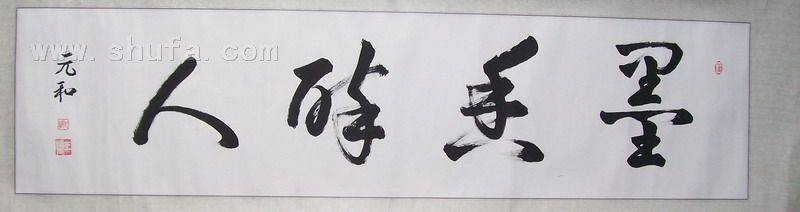 墨香醉人
元和
www.shufa.com